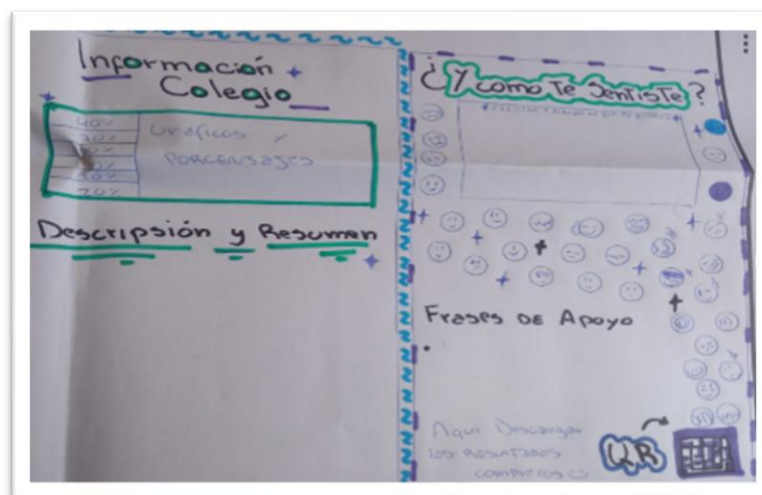 Información
Colegio
40%
Graficos y
PORCENSAGES
20%
Descripsión y Resumen
¿Y como Te SentisTe?
Frases DE Apoyo
Aqui Descargar
los RESULTADOS
COMPLETOS
QR